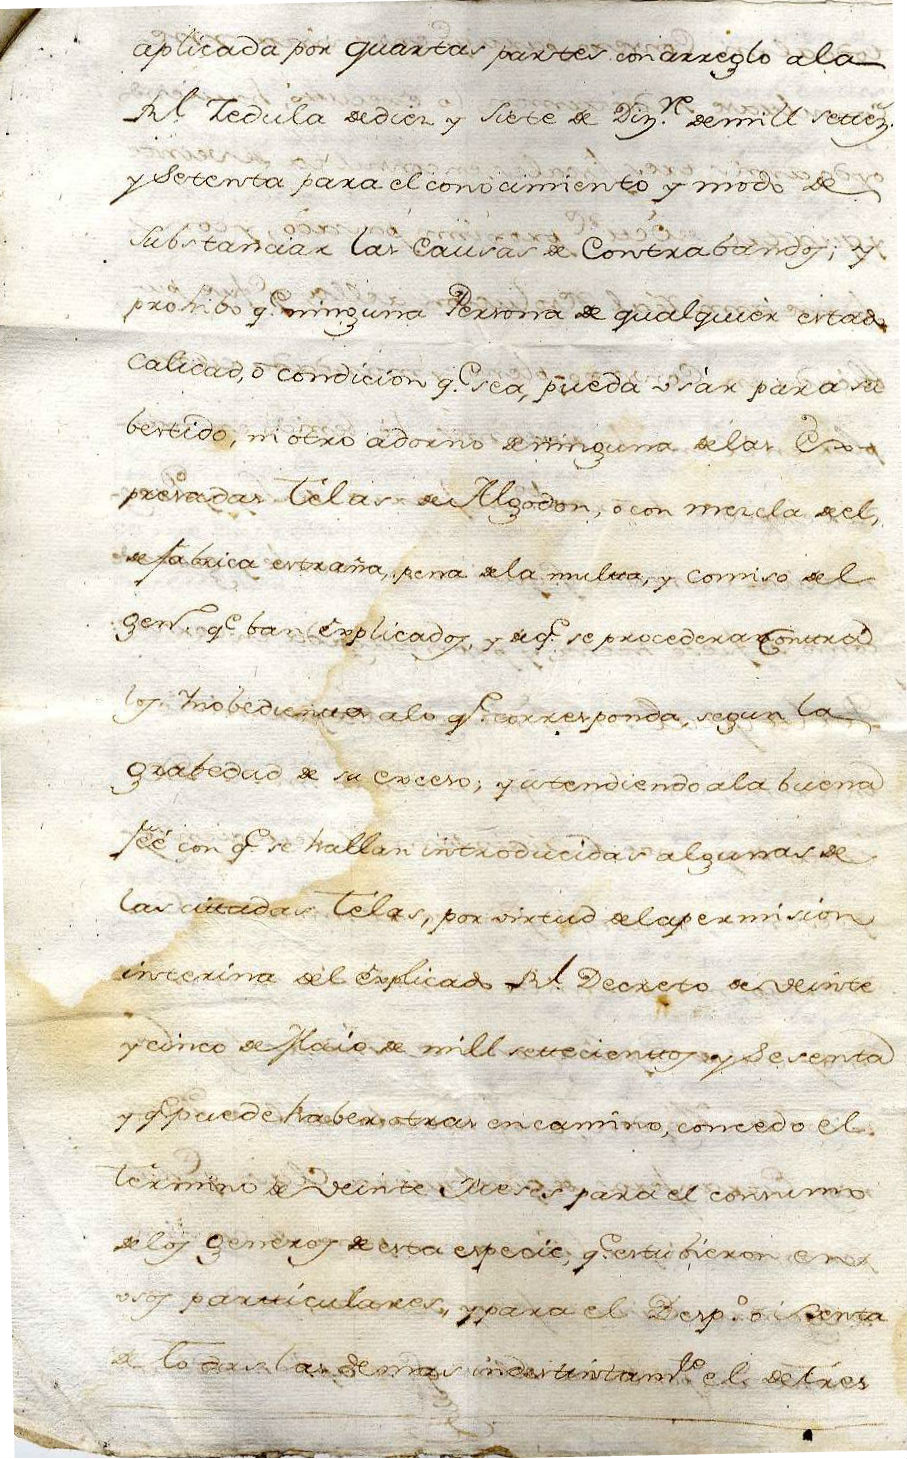 aplicada por quartas partes con arreglo ala
Rl. Zedula de diez y siete de Diz.re de mill setez.s
y Setenta para el conocimiento y modo de
substanciar las Causas de Contrabandos; y
prohibo q.e ninguna Persona de qualquier estado
calidad, ó condicion q.e sea, pueda usár para su
bestido, ni otro adorno de ninguna delas Ex-
presadas Télas de Algodon, ó con mezcla del,
de fabrica estraña, pena dela multa, y Comiso del
gen.o q.e ban Explicados, y áq.e se procederá Contra
los Ynobedientes alo q.e corresponda, segun la
grabedad de su exceso; y atendiendo ala buena
feé con q.e se hallan introducidas algunas de
las citadas Télas, por virtud dela permision
interina del Explicado Rl. Decreto de veinte
y cinco de Maio de mill settecientos y Sesenta
y q.e puede haber otras en camino, concedo el
término de Veinte Meses para el consumo
delos generos de esta especie, q.e estubieron en
usos particulares, y para el Desp.o ó Benta
de todas las demas indestintam.te el de tres